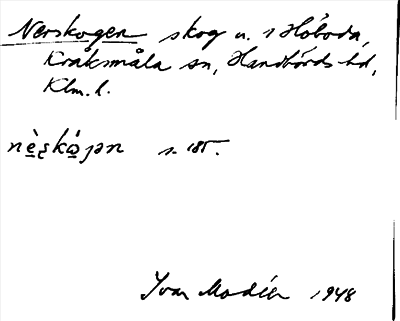 Nerskogen skog u. s Höboda,
Kråksmåla sn, Handbörds hd,
Klm. l.
s. 185.
Ivar Modéer 1948